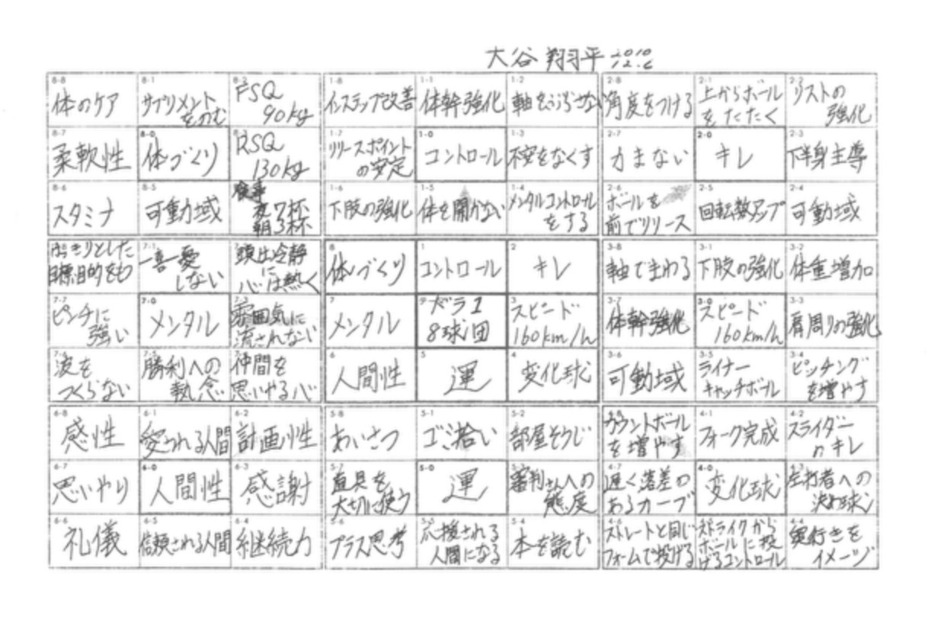 大谷 翔平 2010 12.6
8-8 8-1 8-2 1-8 1-1 1-2 2-8 2-1 2-2
体のケア
サプリメント
をのむ
FSQ
90kg
インステップ改善
体幹強化
軸をぶらさない
角度をつける
上からボール
をたたく
リストの
強化
8-7 8-0 1-7 1-0 1-3 2-7 2-0 2-3
柔軟性
体づくり
RSQ
130kg
リリースポイント
の安定
コントロール
不安をなくす
力まない
キレ
下半身主導
8-6 8-5 1-6 1-5 1-4 2-6 2-5 2-4
スタミナ
可動域
食事
夜7杯
朝3杯
下肢の強化
体を開かない
メンタルコントロール
をする
ボールを
前でリリース
回転数アップ
可動域
7-1 8 1 2 3-8 3-1 3-2
はっきりとした
目標、目的をもつ
一喜一憂
しない
頭は冷静
に
心は熱く
体づくり
コントロール
キレ
軸でまわる
下肢の強化
体重増加
7-7 7-0 7 3 3-7 3-0 3-3
ピンチに
強い
メンタル
雰囲気に
流されない
メンタル
ドラ1
8球団
スピード
160km/h
体幹強化
スピード
160km/h
肩周りの強化
6 5 4 3-6 3-5 3-4
波を
つくらない
勝利への
執念
仲間を
思いやる心
人間性
運
変化球
可動域
ライナー
キャッチボール
ピッチング
を増やす
6-8 6-1 6-2 5-8 5-1 5-2 4-1 4-2
感性
愛される人間
計画性
あいさつ
ゴミ拾い
部屋そうじ
カウントボール
を増やす
フォーク完成
スライダー
のキレ
6-7 6-0 6-3 5-7 5-0 4-7 4-0 4-3
思いやり
人間性
感謝
道具を
大切に使う
運
審判さんへの
態度
遅く落差の
あるカーブ
変化球
左打者への
決め球
6-6 6-5 6-4 5-6 5-5 5-4
礼儀
信頼される人間
継続力
プラス思考
応援される
人間になる
本を読む
ストレートと同じ
フォームで投げる
ストライクから
ボールに投
げるコントロール
奥行きを
イメージ